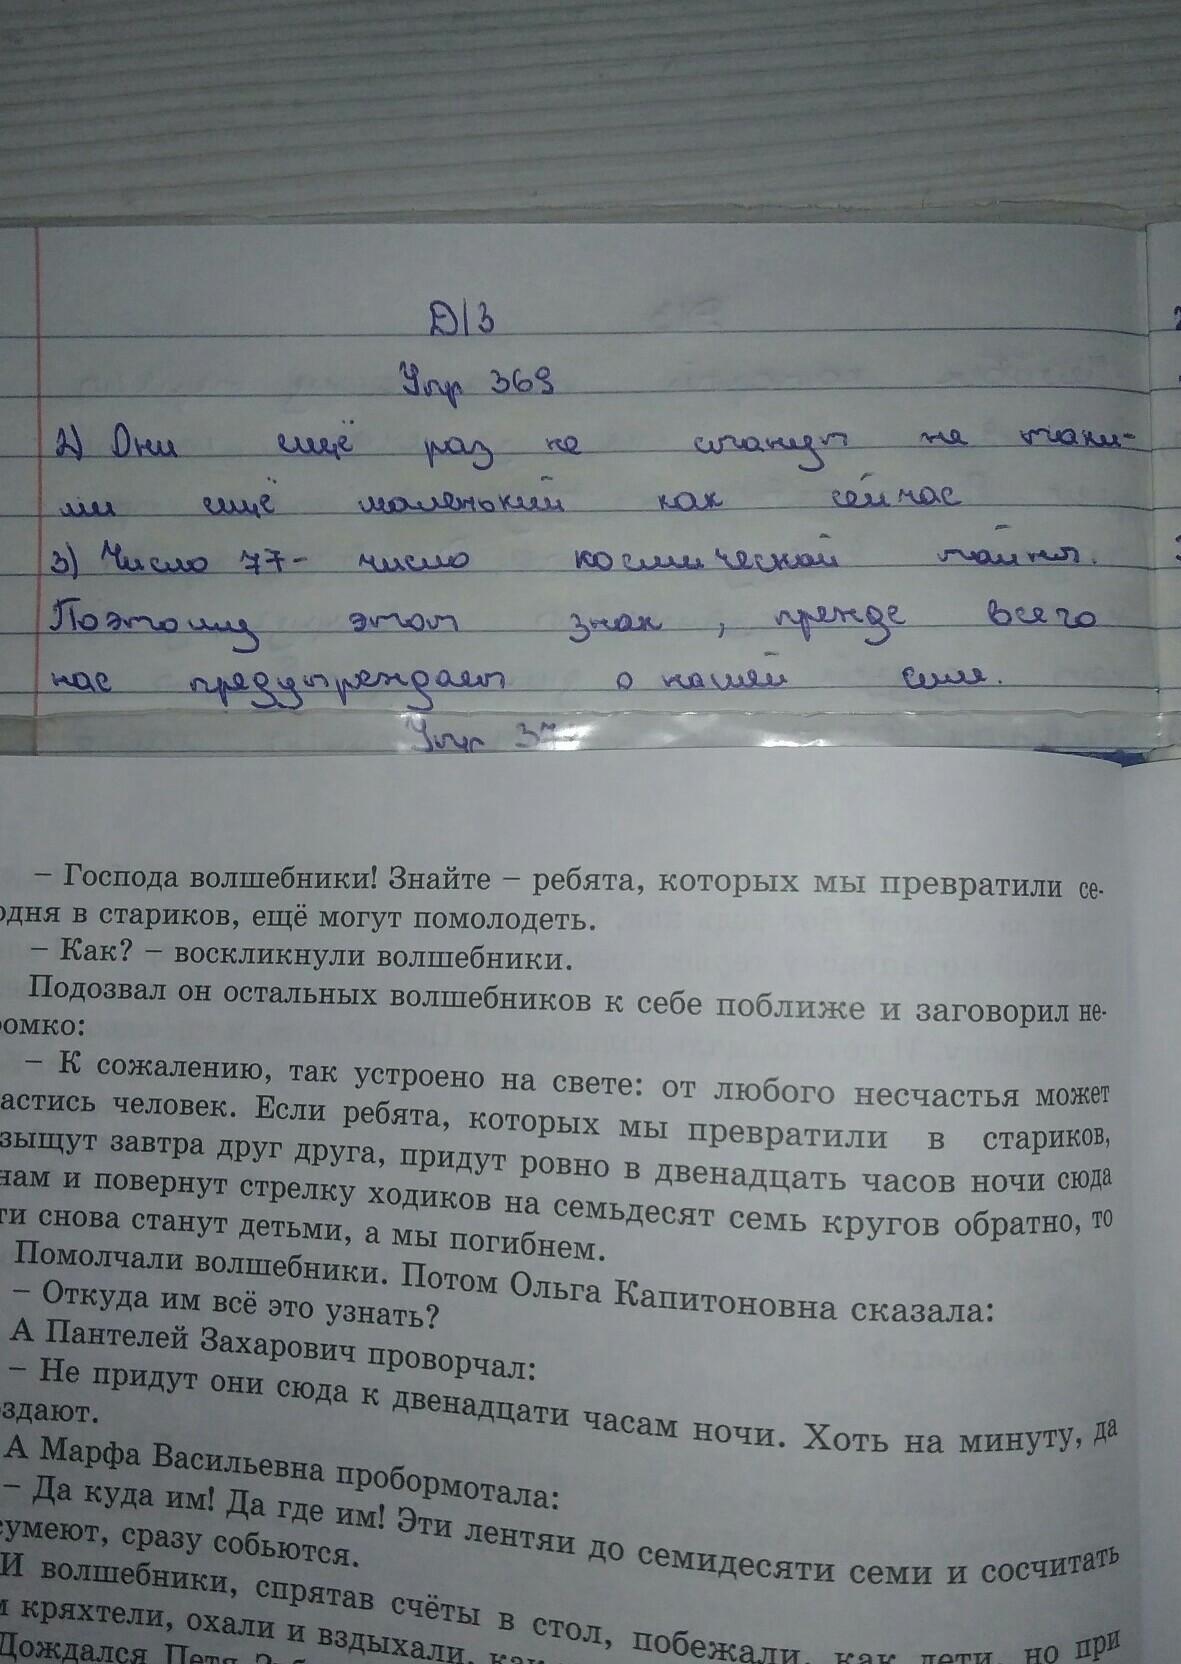 Д/З
Упр 369
2) Они ещё раз не станут на таки-
ми ещё маленький как сейчас
3) Число 77- число космической тайны.
Поэтому этот знак , прежде всего
нас предупреждает о нашей силе.
Упр 37
– Господа волшебники! Знайте – ребята, которых мы превратили се-
одня в стариков, ещё могут помолодеть.
– Как? – воскликнули волшебники.
Подозвал он остальных волшебников к себе поближе и заговорил не-
ромко:
– К сожалению, так устроено на свете: от любого несчастья может
астись человек. Если ребята, которых мы превратили в стариков,
зыщут завтра друг друга, придут ровно в двенадцать часов ночи сюда
нам и повернут стрелку ходиков на семьдесят семь кругов обратно, то
ти снова станут детьми, а мы погибнем.
Помолчали волшебники. Потом Ольга Капитоновна сказала:
– Откуда им всё это узнать?
А Пантелей Захарович проворчал:
– Не придут они сюда к двенадцати часам ночи. Хоть на минуту, да
здают.
А Марфа Васильевна пробормотала:
– Да куда им! Да где им! Эти лентяи до семидесяти семи и сосчитать
сумеют, сразу собьются.
И волшебники, спрятав счёты в стол, побежали, как дети, но при
кряхтели, охали и вздыхали, как
Дождался Петя